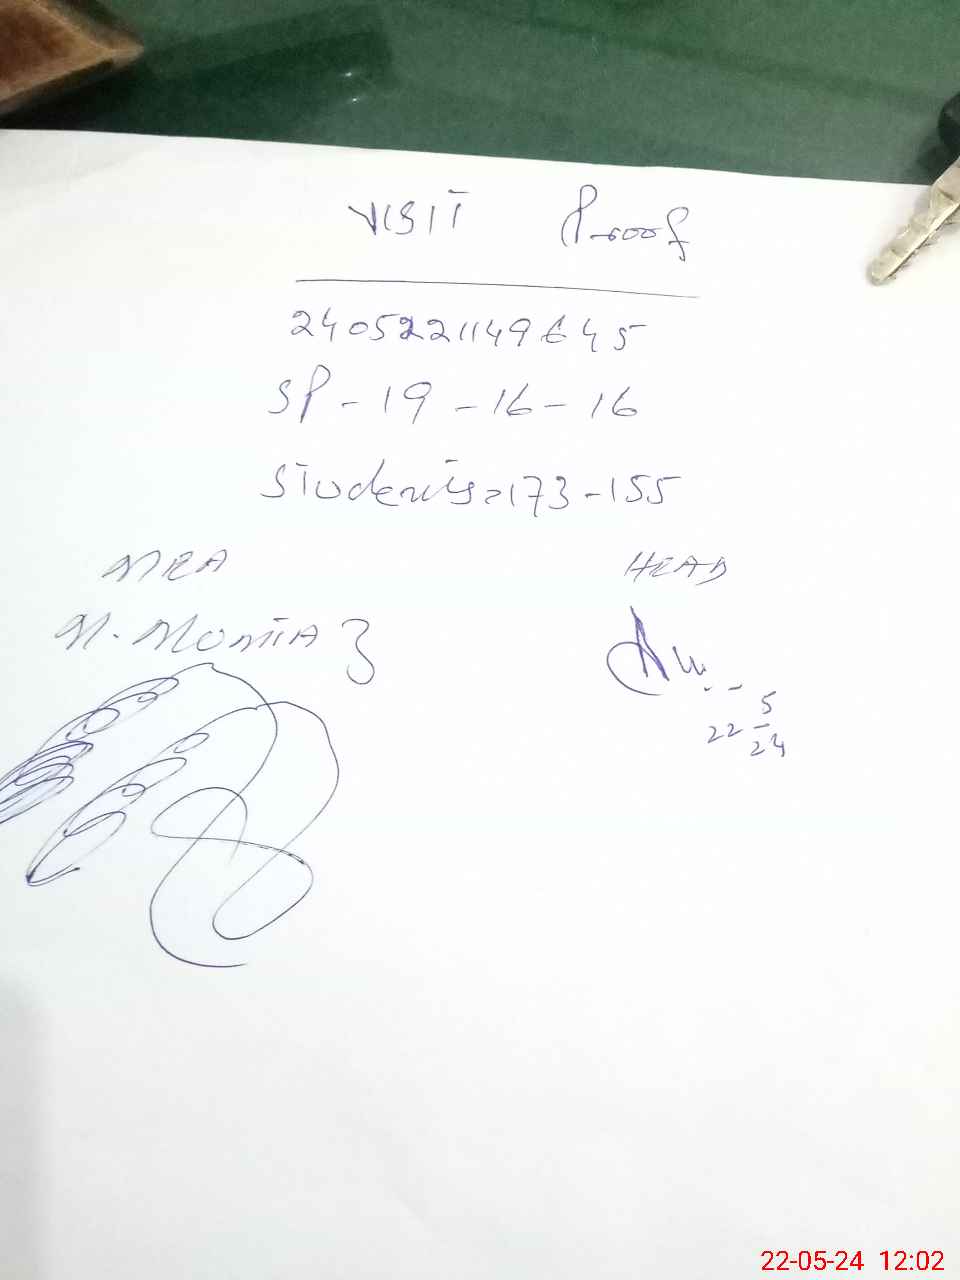 VISIT Proof
2405221149645
SP-19-16-16
Students=173-155
MEA HEAD
M. Momtaz
22 5/24
22-05-24 12:02